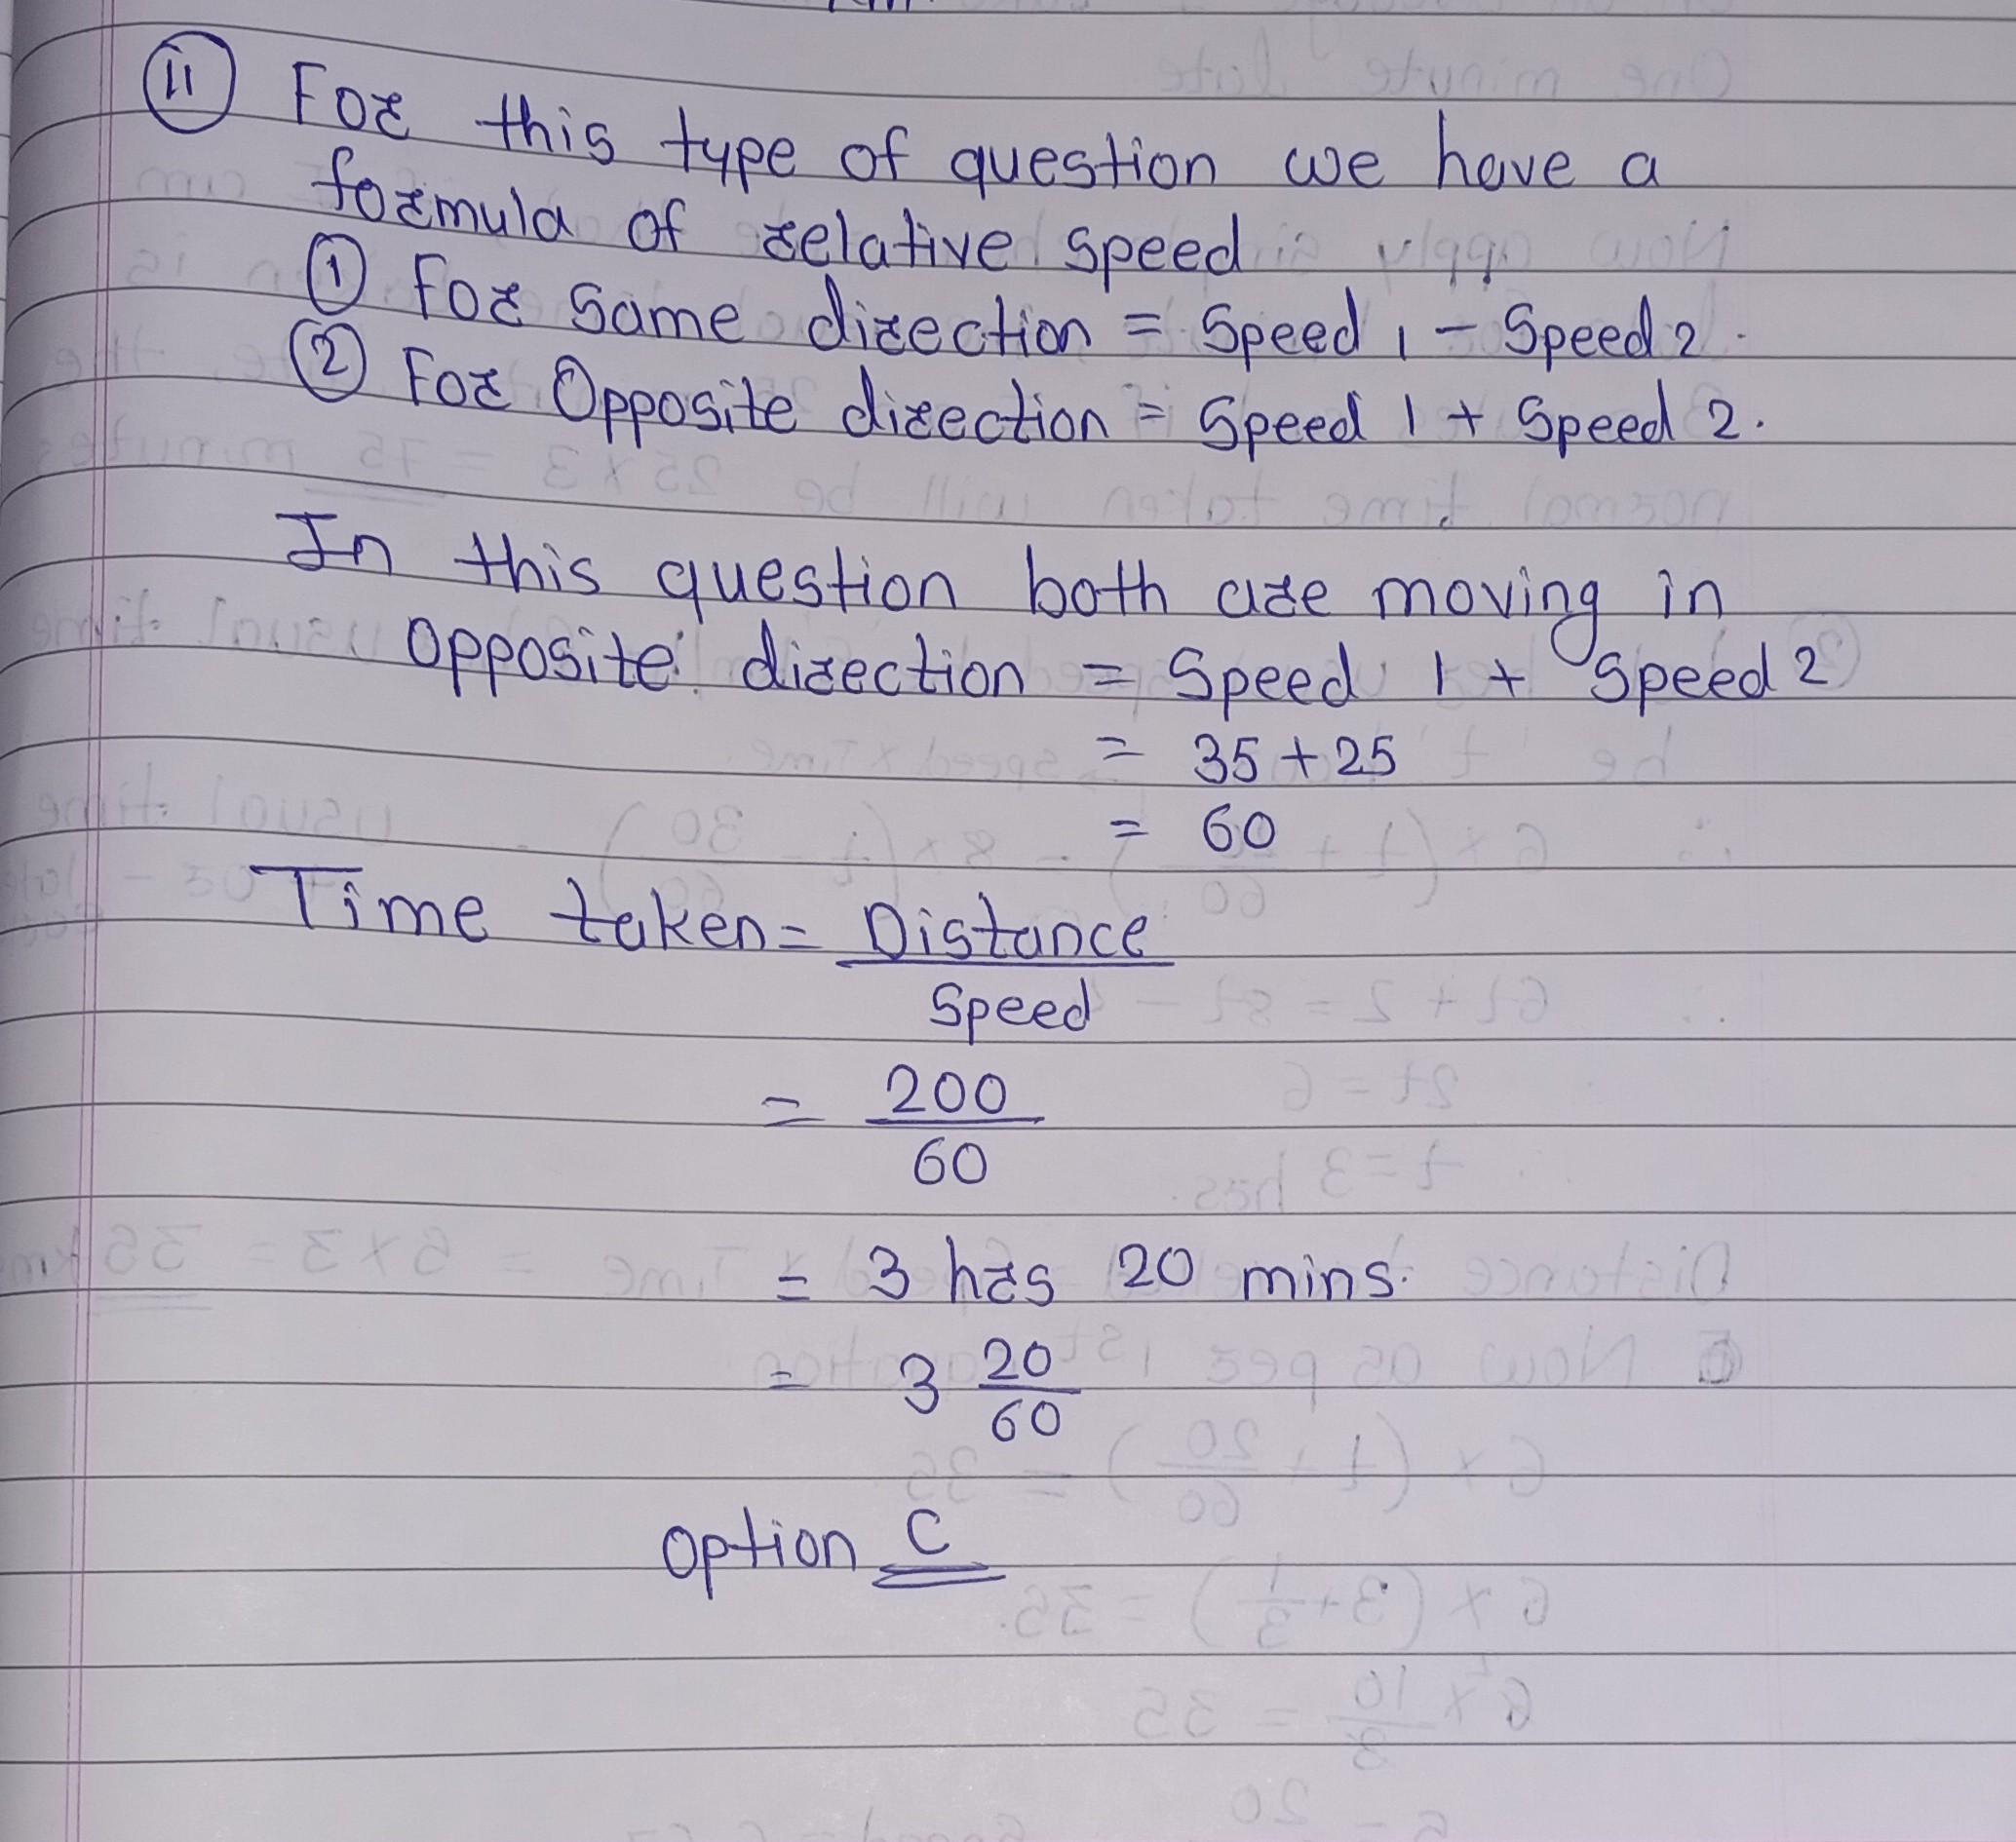 ii For this type of question we have a
formula of relative speed
1 For same direction = Speed 1 - Speed 2.
2 For Opposite direction = Speed 1 + Speed 2.
In this question both are moving in
opposite direction = Speed 1 + Speed 2
= 35 + 25
= 60
Time taken = Distance
Speed
= 200
60
= 3 hrs 20 mins.
= 3 20
60
Option C